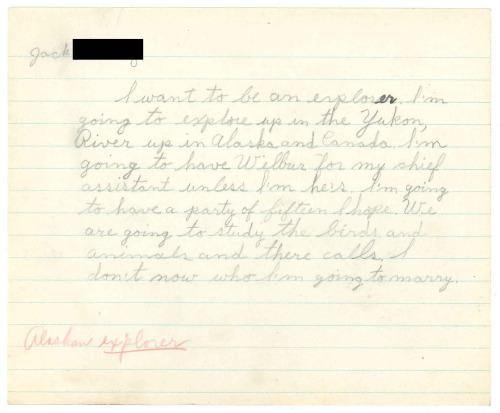 Jack
I want to be an explorer. I'm
going to explore up in the Yukon,
River up in Alaska and Canada. I'm
going to have Wilbur for my chief
assistant unless I'm heis. I'm going
to have a party of fifteen I hope. We
are going to study the birds and
animals and there calls. I
don't now who I'm going to marry.
Alaskan explorer